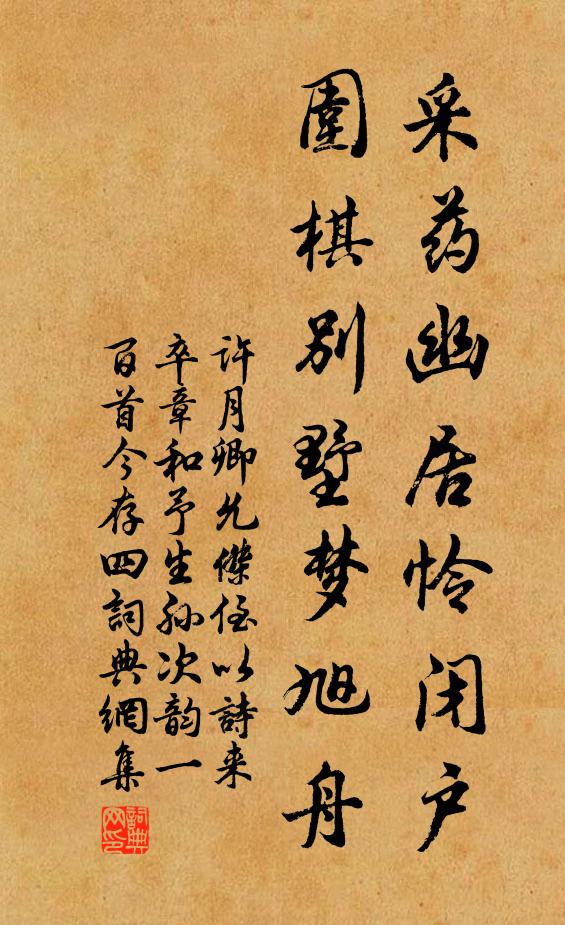 采药幽居怜闭户
圍棋别墅梦旭舟
许月卿允傑侄以詩来
卒章和予生孙次韵一
百首今存四詞典網集
詞典
网印